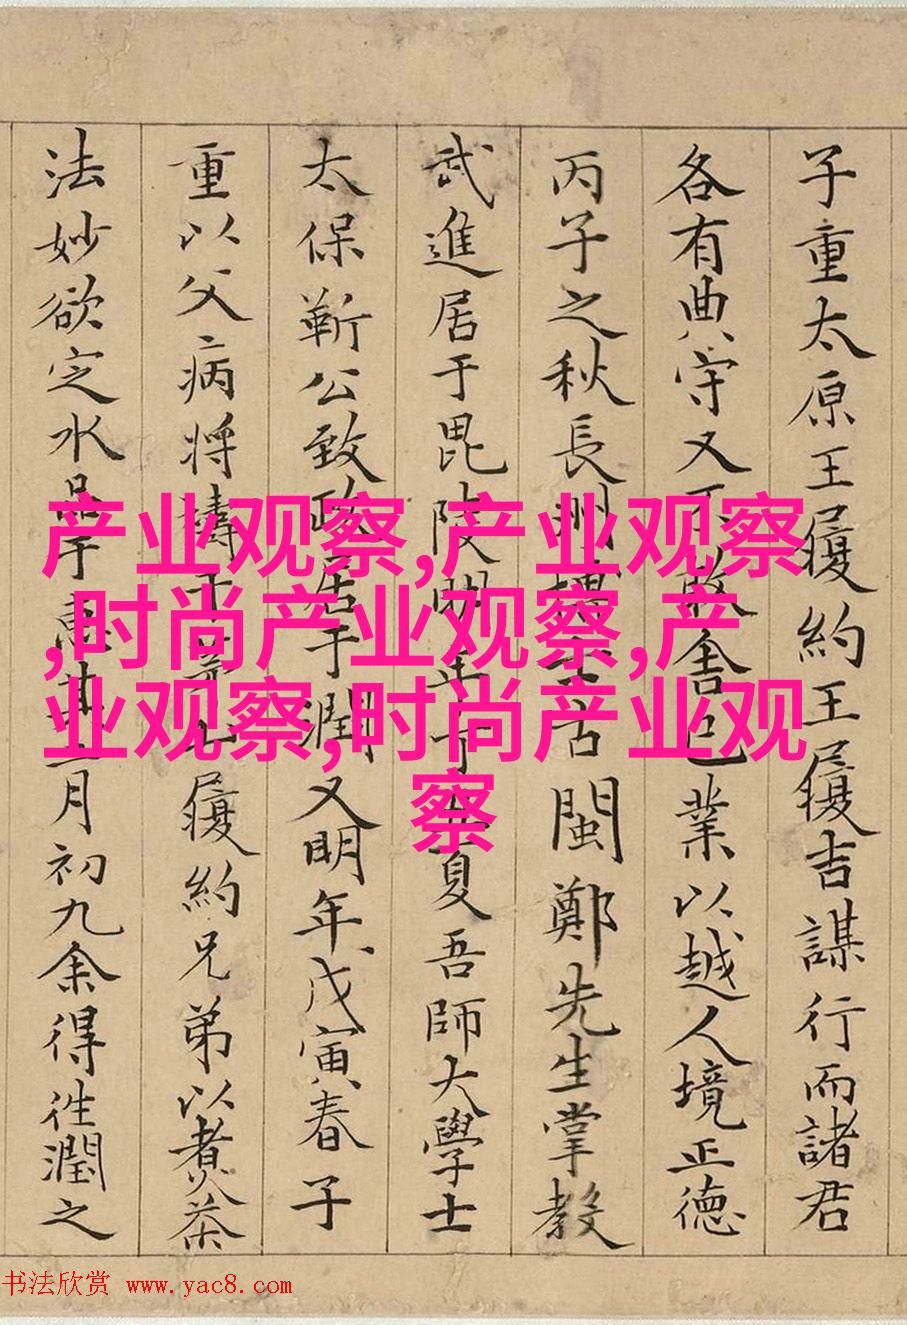 子重太原王履約王履吉謀行而諸君
各有典守又不敢舍己業以越人境正德
丙子之秋長洲古閩鄭先生掌教
武進居于毘陵明年丁丑夏吾師大學士
太保靳公致政居于潤又明年戊寅春子
重以父病將禱于履約兄弟以煮茶
法妙欲定水品于惠其三月初九余得往潤之
产业观察,产业观察
,时尚产业观察,产
业观察,时尚产业观
察
书法欣赏 www.yac8.com